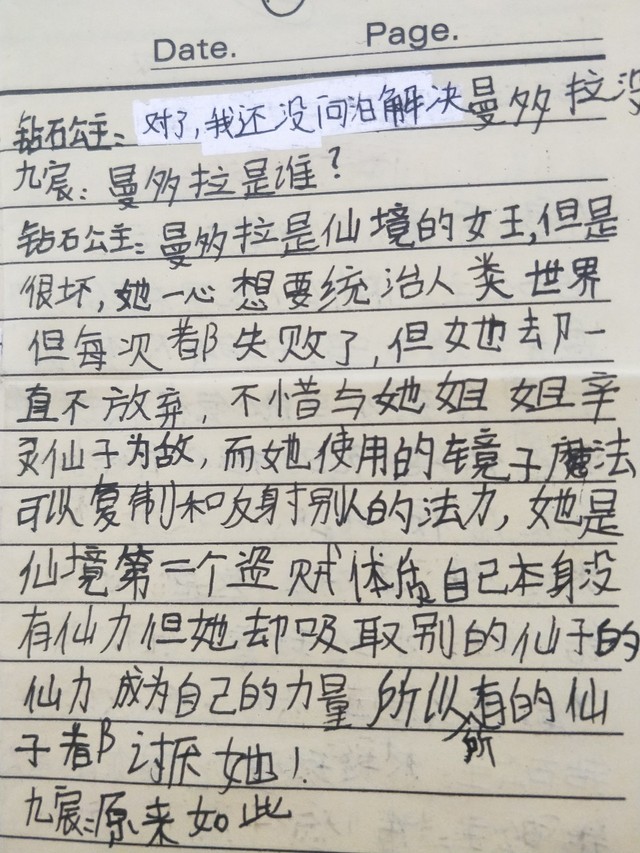 Date. Page.
钻石公主：对了，我还没问泊解决曼多拉没
九宸：曼多拉是谁？
钻石公主：曼多拉是仙境的女王，但是
很坏，她一心想要统治人类世界
但每次都失败了，但她却一
直不放弃，不惜与她姐姐辛
灵仙子为敌，而她使用的镜子魔法
可以复制和反射别人的法力，她是
仙境第一个盗贼体质自己本身没
有仙力但她却吸取别的仙子的
仙力成为自己的力量所以所有的仙
子都讨厌她！
九宸：原来如此